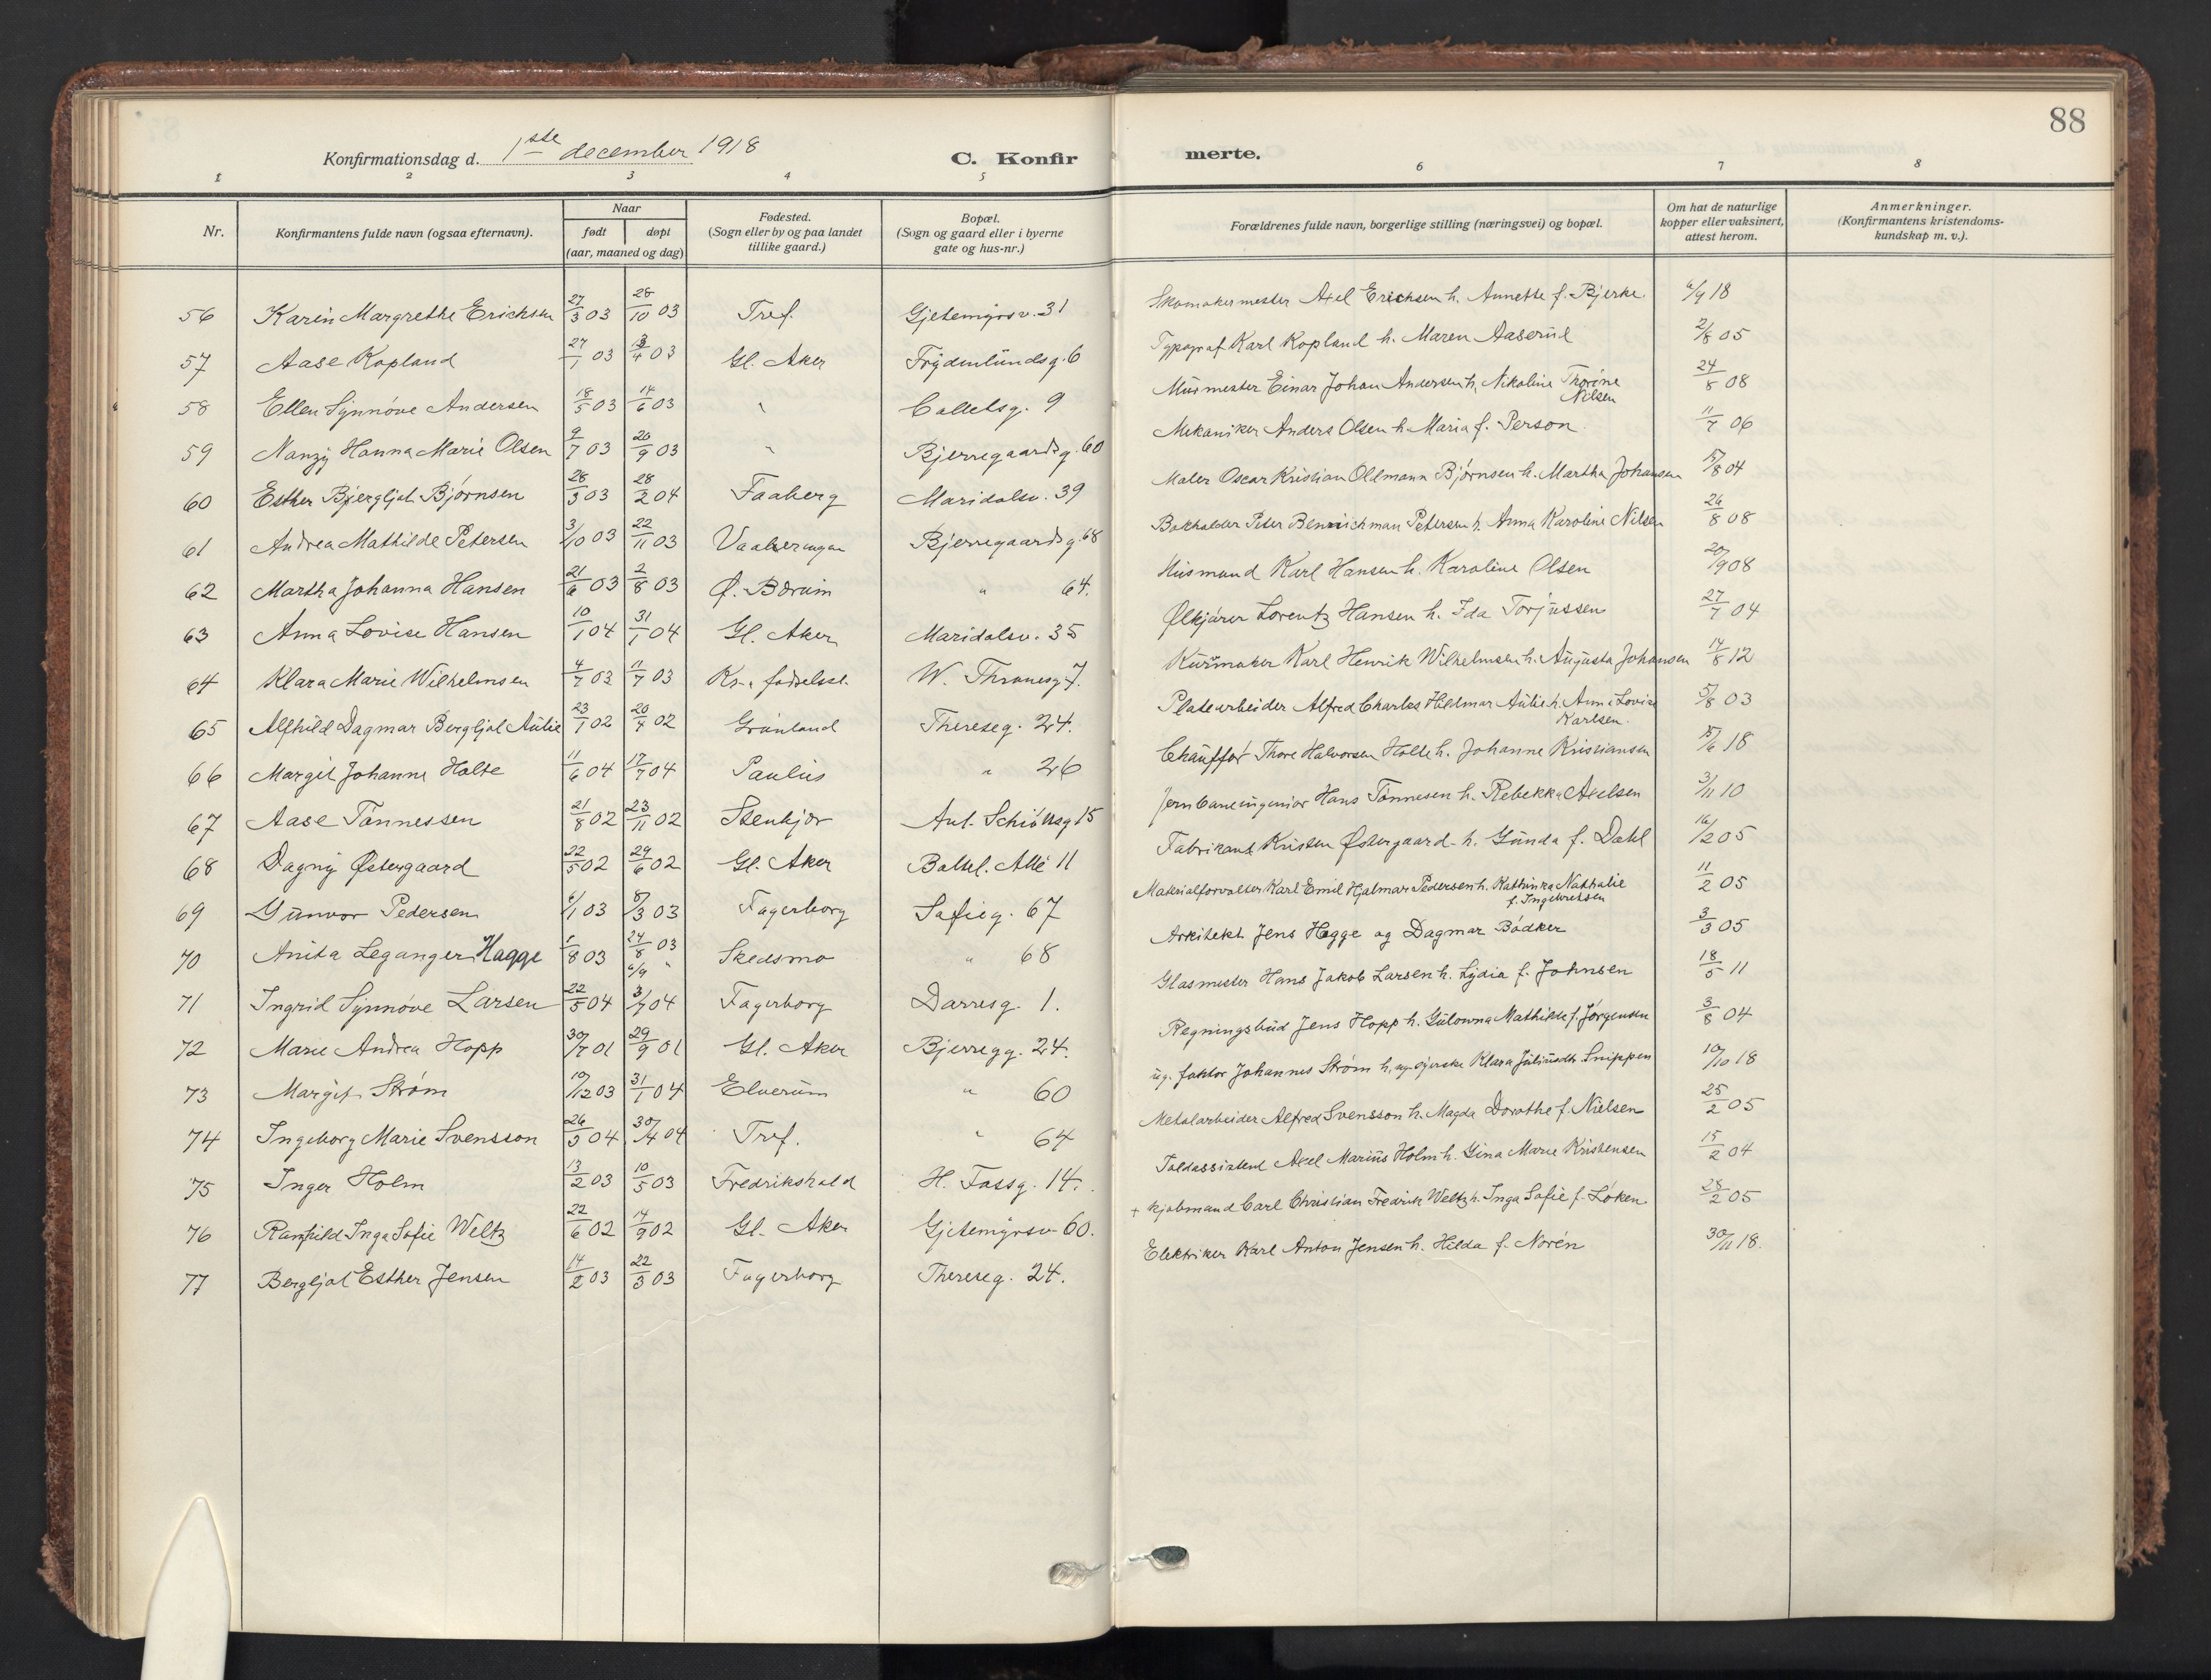 88
Konfirmationsdag d. 1ste december 1918 C. Konfirmerte.
1 2 3 4 5 6 7 8
Nr. Konfirmantens fulde navn (ogsaa efternavn). Naar født døpt (aar, maaned og dag) Fødested. (Sogn eller by og paa landet tillike gaard.) Bopæl. (Sogn og gaard eller i byerne gate og hus-nr.) Forældrenes fulde navn, borgerlige stilling (næringsvei) og bopæl. Om hat de naturlige kopper eller vaksinert, attest herom. Anmerkninger. (Konfirmantens kristendoms-kundskap m. v.).
56 Karin Margrethe Erichsen 27/3 03 28/10 03 Tref. Gjetemyrsv. 31 Skomakermester Axel Erichsen h. Annette f. Bjerke 6/9 18
57 Aase Kopland 27/1 03 13/4 03 Gl. Aker Frydenlundsg. 6 Typograf Karl Kopland h. Maren Aaserud 2/8 05
58 Ellen Synnøve Andersen 18/5 03 14/6 03 " Colletsg. 9 Murmester Einar Johan Andersen h. Nikoline Thorine Nilsen 24/8 08
59 Nanzy Hanna Marie Olsen 9/7 03 20/9 03 " Bjerregaardsg. 60 Mekaniker Anders Olsen h. Maria f. Person 11/7 06
60 Esther Bjergljot Bjørnsen 28/3 03 28/2 04 Faaberg Maridalsv. 39 Maler Oscar Kristian Oldmann Bjørnsen h. Martha Johansen 5/8 04
61 Andrea Mathilde Petersen 3/10 03 22/11 03 Vaalerengen Bjerregaardsg. 68 Bokholder Peter Petersen h. Anna Karoline Nilsen 26/8 08
62 Martha Johanna Hansen 21/6 03 2/8 03 Ø. Bærum " 64. Husmand Karl Hansen h. Karoline Olsen 20/9 08
63 Anna Lovise Hansen 10/1 04 31/1 04 Gl. Aker Maridalsv. 35 Ølkjører Lorentz Hansen h. Ida Torjussen 27/7 04
64 Klara Marie Wilhelmsen 4/7 03 11/7 03 Kr.a fødselsst. W. Thranesg 7. Kurvmaker Karl Henrik Wilhelmsen h. Augusta Johansen 14/8 12
65 Alfhild Dagmar Bergljot Aulie 23/1 02 20/4 02 Grønland Thereseg. 24. Platearbeider Alfred Charles Hildmar Aulie h. Anna Lovise Karlsen. 5/8 03
66 Margit Johanne Holte 11/6 04 17/7 04 Paulus " 26 Chauffør Thore Halvorsen Holte h. Johanne Kristiansen 15/6 18
67 Aase Tønnessen 21/8 02 23/11 02 Stenkjær Ant. Schiøttsg 15 Jernbaneingeniør Hans Tønnesen h. Rebekka Axelsen 3/11 10
68 Dagny Østergaard 22/5 02 29/6 02 Gl. Aker Baltsel. Allé 11 Fabrikant Kristen Østergaard h. Gunda f. Dahl 16/2 05
69 Gunvor Pedersen 6/1 03 8/3 03 Fagerborg Sofieg. 67 Materialforvalter Karl Emil Hjalmar Pedersen h. Kathinka Nathalie f. Ingebretsen 11/2 05
70 Anita Leganger Hagge 1/8 03 24/8 03 6/9 " Skedsmo " 68 Arkitekt Jens Hagge og Dagmar Bødker 3/3 05
71 Ingrid Synnøve Larsen 22/5 04 3/7 04 Fagerborg Darresg. 1. Glasmester Hans Jakob Larsen h. Lydia f. Johnsen 18/5 11
72 Marie Andrea Hopp 30/7 01 29/9 01 Gl. Aker Bjerregg. 24. Regningsbud Jens Hopp h. Gulowna Mathilde f. Jørgensen 3/8 04
73 Margit Strøm 10/12 03 31/1 04 Elverum " 60 ug. faktor Johannes Strøm h. ug. syerske Klara Juliusdtr Snippen 10/10 18
74 Ingeborg Marie Svensson 26/3 04 30/4 04 Tref. " 64 Metalarbeider Alfred Svensson h. Magda Dorothe f. Nielsen 25/2 05
75 Inger Holm 13/2 03 10/5 03 Fredrikshald H. Fossg. 14. Toldassistent Axel Marius Holm h. Gina Marie Kristensen 15/2 04
76 Ranhild Inga Sofie Weltz 22/6 02 14/9 02 Gl. Aker Gjetemyrsv 60. + kjøbmand Carl Christian Fredrik Weltz h. Inga Sofie f. Løken 28/2 05
77 Bergljot Esther Jensen 14/2 03 22/3 03 Fagerborg Thereseg. 24. Elektriker Karl Anton Jensen h. Hilda f. Norén 30/11 18.